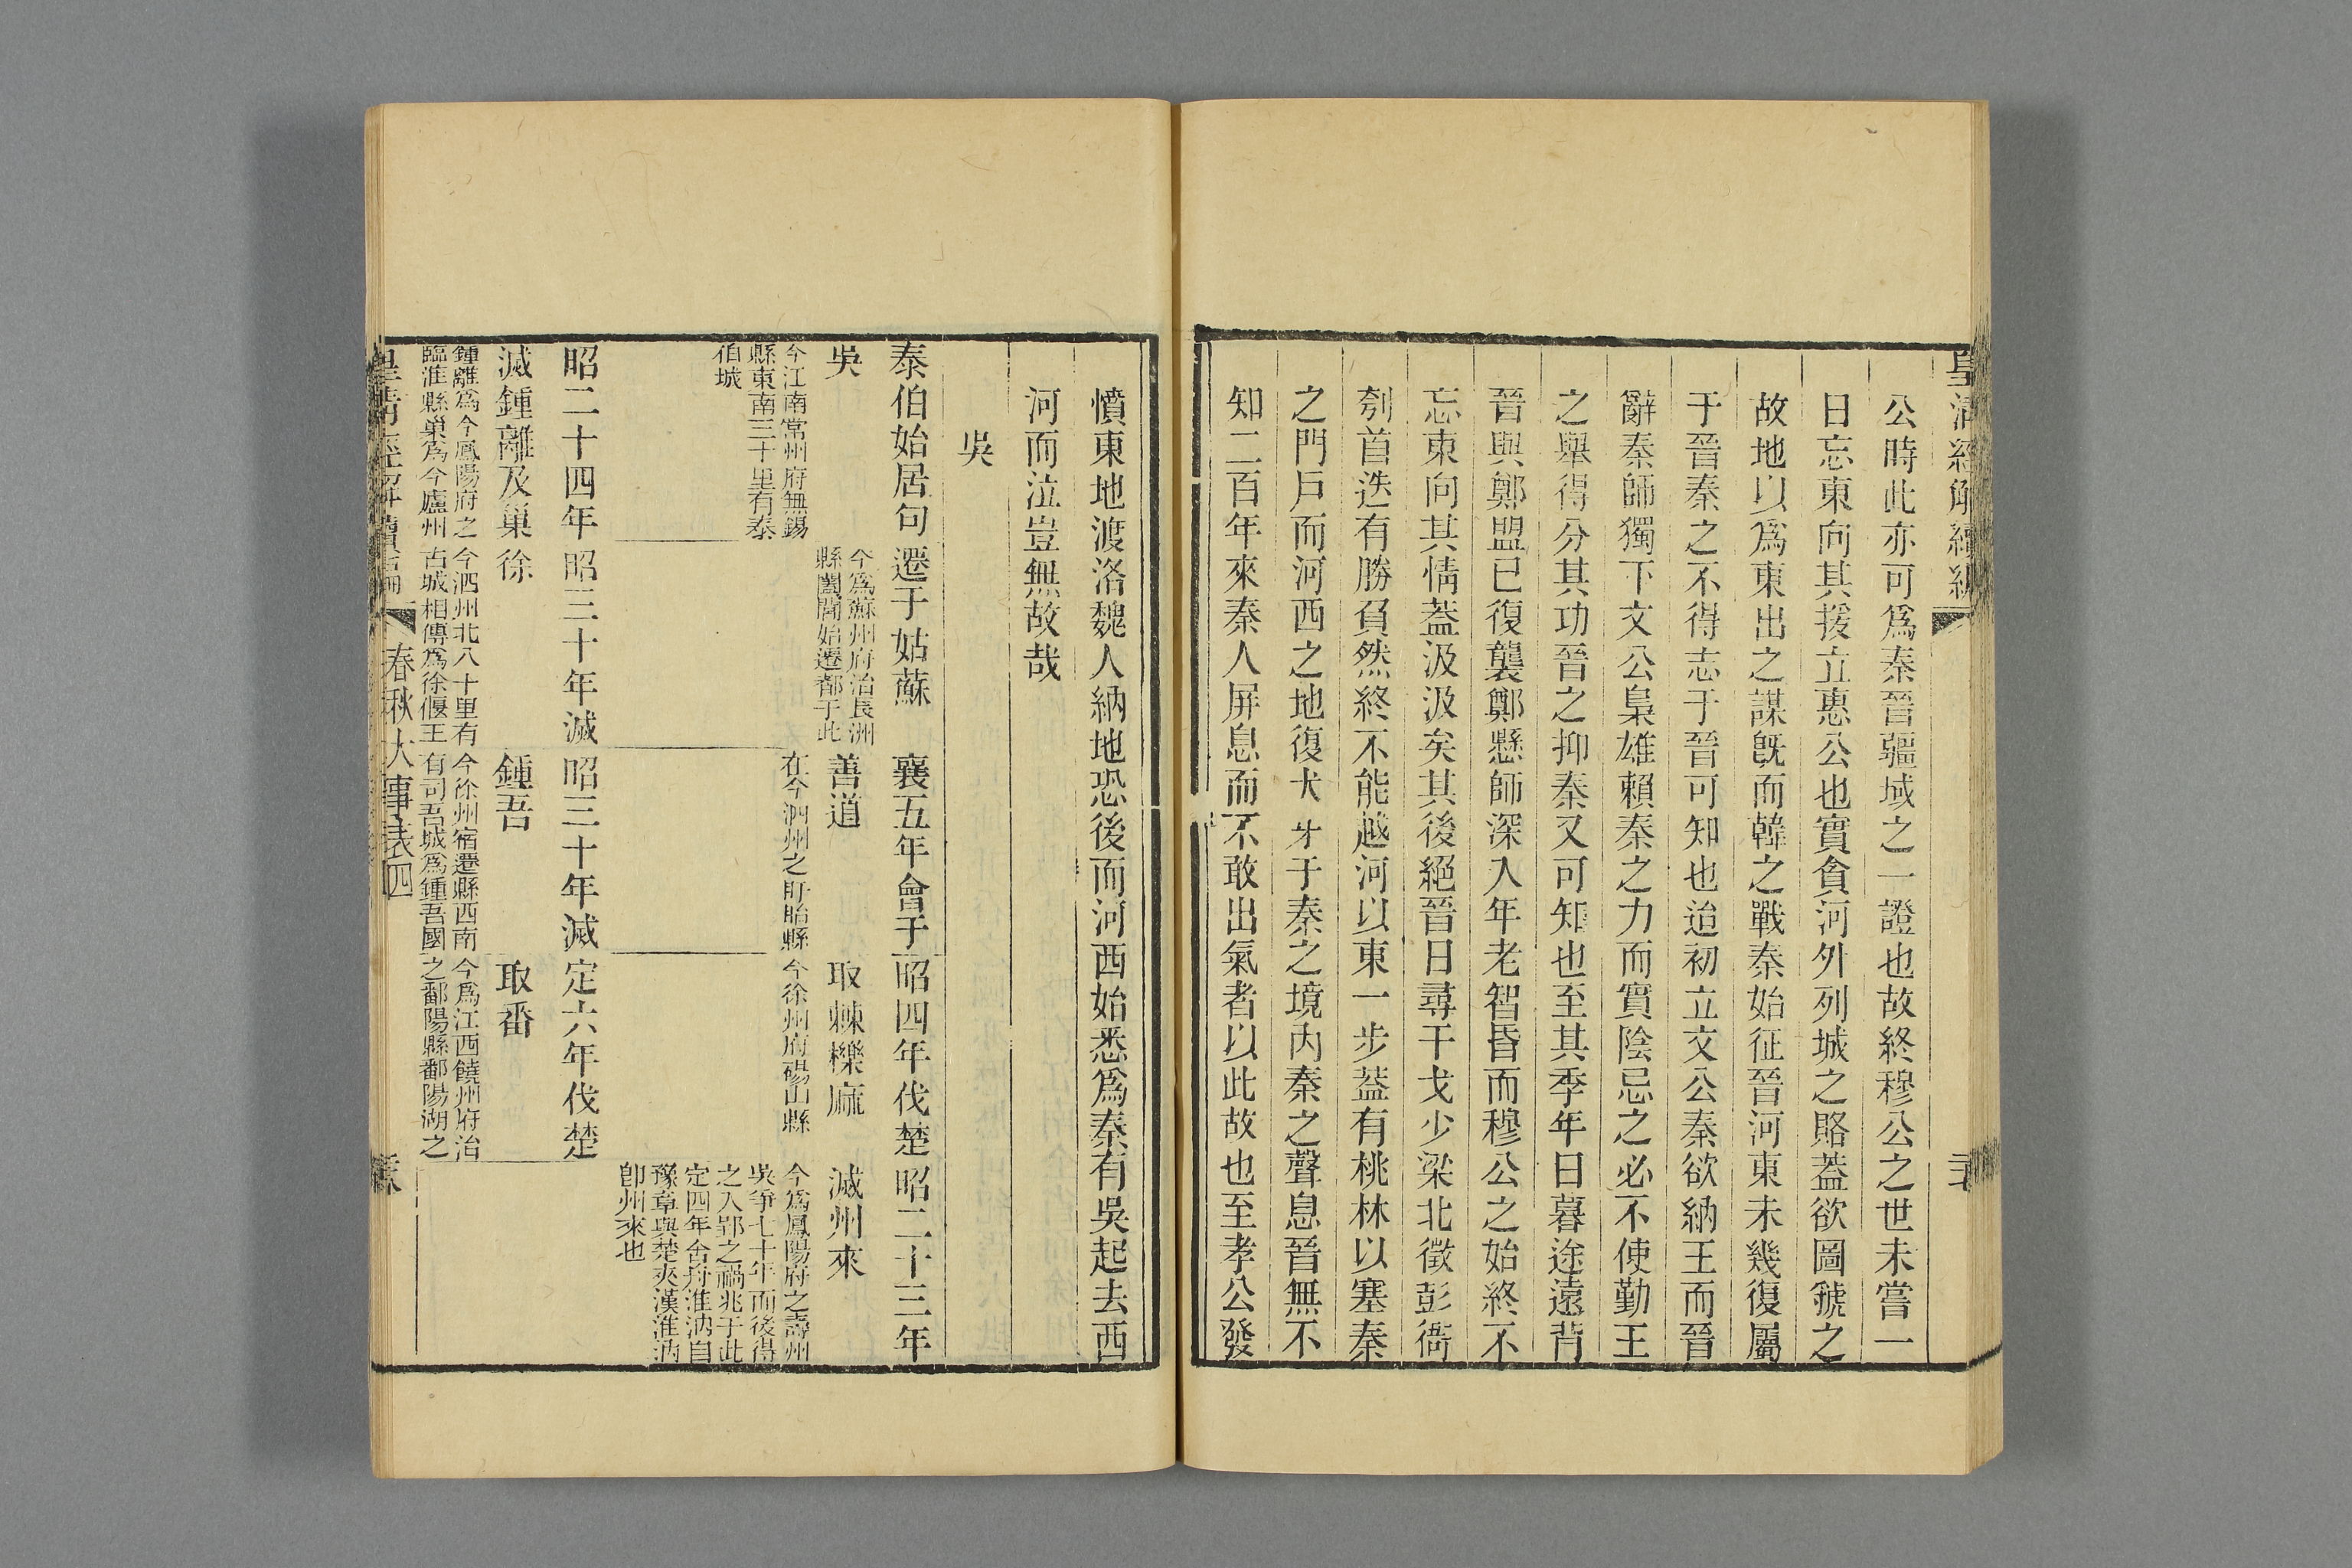 皇清經解續編
公時此亦可爲秦晉疆域之一證也故終穆公之世未嘗一
日忘東向其援立惠公也實貪河外列城之賂葢欲圖虢之
故地以爲東出之謀旣而韓之戰秦始征晉河東未幾復屬
于晉秦之不得志于晉可知也迨初立文公秦欲納王而晉
辭秦師獨下文公梟雄賴秦之力而實陰忌之必不使勤王
之舉得分其功晉之抑秦又可知也至其季年日暮途遠背
晉與鄭盟已復襲鄭懸師深入年老智昏而穆公之始終不
忘東向其情葢汲汲矣其後絕晉日尋干戈少梁北徵彭衙
刳首迭有勝負然終不能越河以東一步葢有桃林以塞秦
之門戶而河西之地復犬牙于秦之境內秦之聲息晉無不
知二百年來秦人屏息而不敢出氣者以此故也至孝公發
憤東地渡洛魏人納地恐後而河西始悉爲秦有吳起去西
河而泣豈無故哉
吳
泰伯始居句
吳
今江南常州府無錫
縣東南三十里有泰
伯城
遷于姑蘇
今爲蘇州府治長洲
縣闔閭始遷都于此
襄五年會于
善道
在今泗州之盱眙縣
昭四年伐楚
取棘櫟麻
今徐州府碭山縣
昭二十三年
滅州來
今爲鳳陽府之壽州
吳爭七十年而後得
之入郢之禍兆于此
定四年舍舟淮汭自
豫章與楚夾漢淮汭
卽州來也
昭二十四年
滅鍾離及巢
鍾離爲今鳳陽府之
臨淮縣巢爲今廬州
昭三十年滅
徐
今泗州北八十里有
古城相傳爲徐偃王
昭三十年滅
鍾吾
今徐州宿遷縣西南
有司吾城爲鍾吾國
定六年伐楚
取番
今爲江西饒州府治
之鄱陽縣鄱陽湖之
皇清經解續編
春秋大事表四